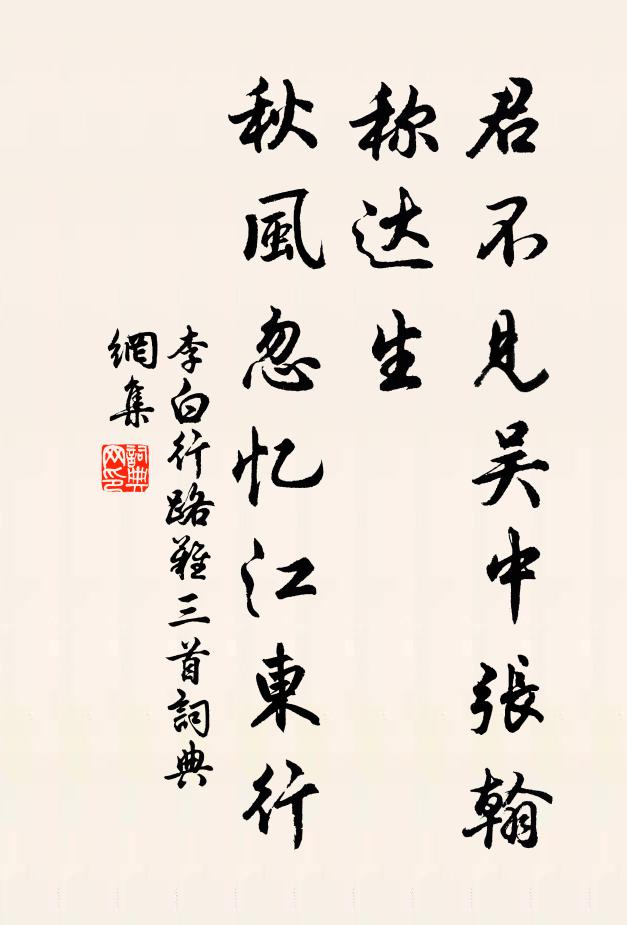 君不见吴中張翰
称达生
秋風忽忆江東行
李白行路難三首詞典
網集
詞典
网印